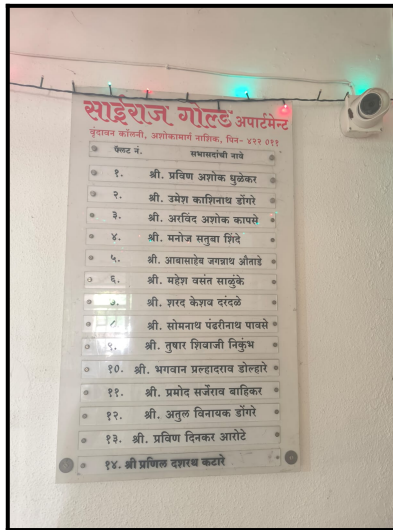 साईराज गोल्ड अपार्टमेन्ट
वृंदावन कॉलनी, अशोकामार्ग नाशिक, पिन- ४२२ ०११
फ्लॅट नं. सभासदांची नावे
१. श्री. प्रविण अशोक धुळेकर
२. श्री. उमेश काशिनाथ डोंगरे
३. श्री. अरविंद अशोक कापसे
४. श्री. मनोज सतुबा शिंदे
५. श्री. आबासाहेब जगन्नाथ औताडे
६. श्री. महेश वसंत साळुंके
७. श्री. शरद केशव दरंदळे
श्री. सोमनाथ पंढरीनाथ पावसे
९. श्री. तुषार शिवाजी निकुंभ
१०. श्री. भगवान प्रल्हादराव डोल्हारे
११. श्री. प्रमोद सर्जेराव बाहिकर
१२. श्री. अतुल विनायक डोंगरे
१३. श्री. प्रविण दिनकर आरोटे
१४. श्री प्रणिल दशरथ कटारे